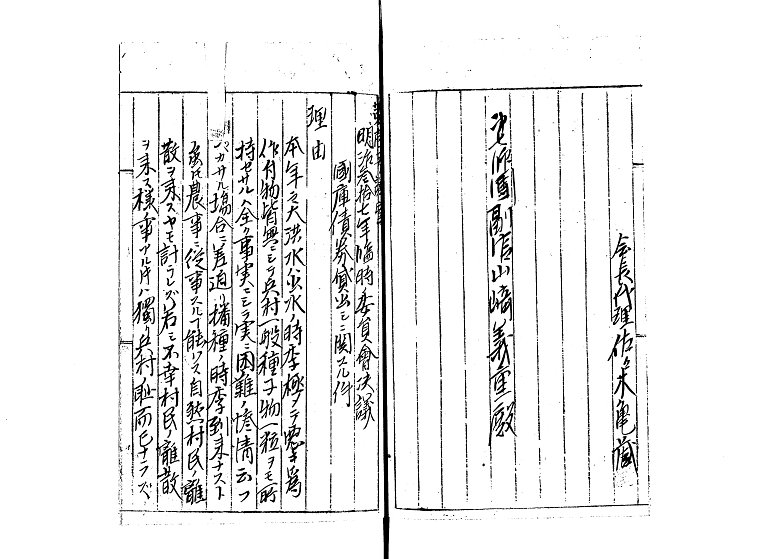 会長代理佐々木亀蔵
副官山﨑義重殿
明治叁拾七年臨時委員會決議
國庫債券貸出シニ関スル件
理由
本年之大洪水出水ノ時季極メテ悪キ為
作付物皆無ニシテ兵村一般種子物一粒ヲモ所
持セサルハ全ク事実ニシテ実ニ困難ノ惨情云フ
ヘカラサル場合ニ差迫リ播種ノ時季到来ナスト
農事ニ従事スル能ハス自然村民ノ離
散ヲ来スヤモ計ラレズ若シ不幸村民ノ離散
ヲ来ス様ノ事アル片ハ獨リ兵村耻而已ナラズ